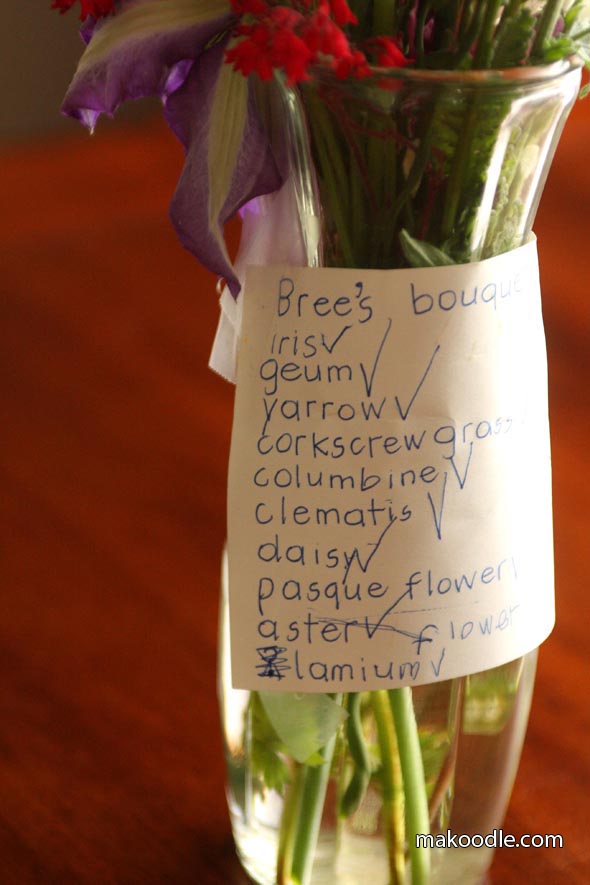 Bree's bouque
iris✓
geum✓
yarrow✓
corkscrew grass
columbine ✓
clematis ✓
daisy✓
pasque flower
aster✓ flower
lamium✓
makoodle.com